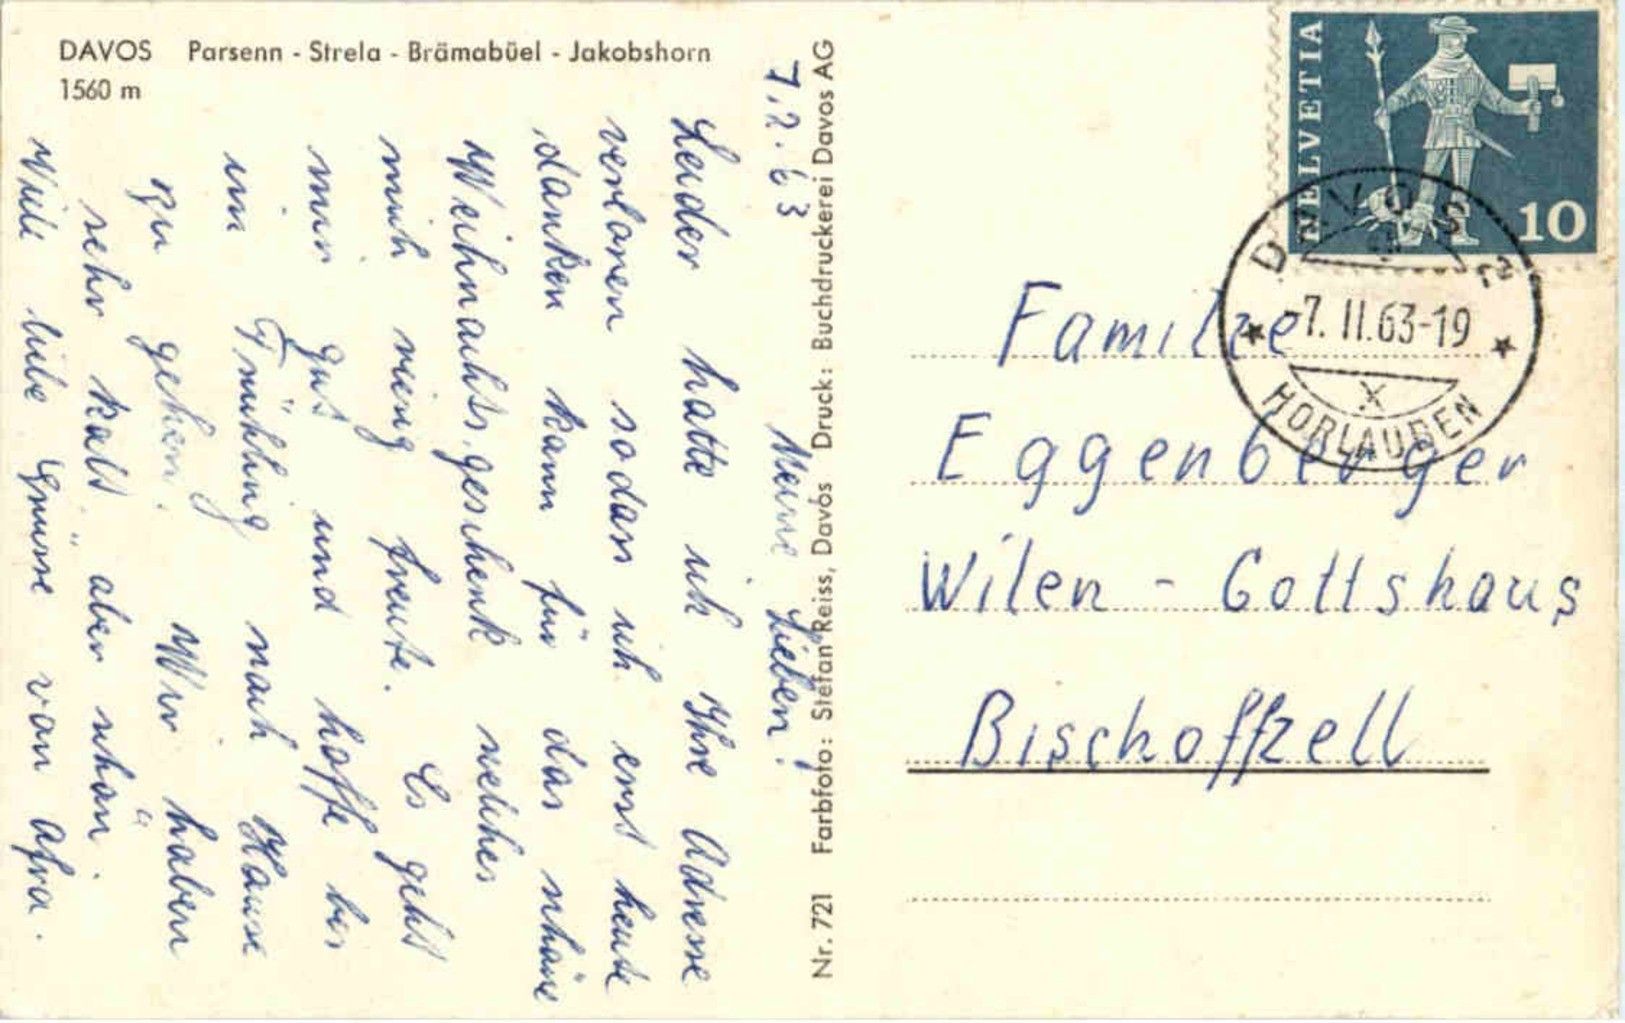 DAVOS Parsenn - Strela - Brämabüel - Jakobshorn
1560 m
7.2.63
Meine Lieben!
Leider hatte ich Ihre Adresse
verloren sodass ich erst heute
danken kann für das schöne
Weihnachtsgeschenk welches
mich riesig freute. Es geht
mir gut und hoffe bis
im Frühling nach Hause
zu gehen. Wir haben
sehr kalt, aber schön.
Viele liebe Grüsse von Afra.
Nr. 721 Farbfoto: Stefan Reiss, Davos Druck: Buchdruckerei Davos AG
HELVETIA
10
DAVOS 2
-7.II.63-19
HORLAUBEN
Familie
Eggenberger
Wilen - Gottshaus
Bischoffzell